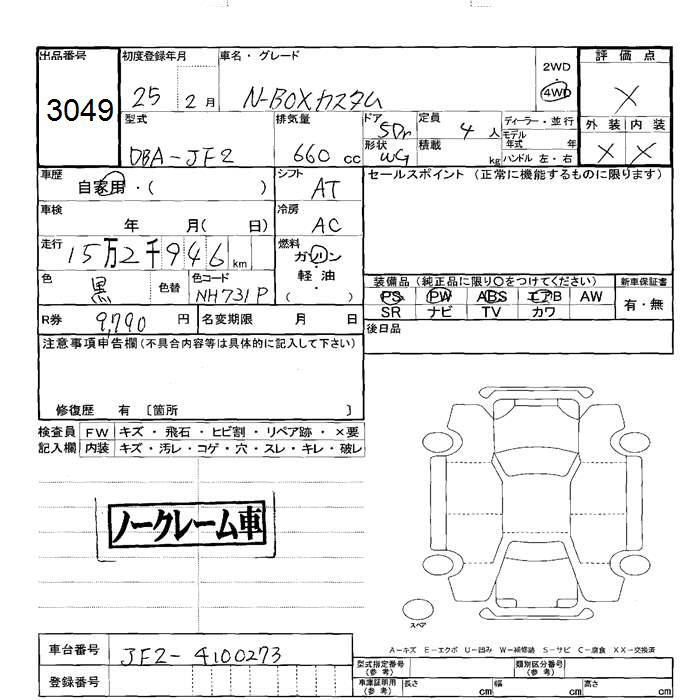 出品番号 初度登録年月 車名・グレード 評価点
3049 25 2月 N-BOXカスタム 2WD 4WD X
型式 排気量 ドア 定員 ディーラー・並行 外装 内装
DBA-JF2 660 cc 5Dr 4人 モデル年式 年 X X
形状 WG 積載 kg ハンドル 左・右
車歴 シフト セールスポイント (正常に機能するものに限ります)
自家用・( ) AT
車検 冷房
年 月( 日) AC
走行 燃料
15万2千946 km ガソリン
色 色替 色コード 軽・油
黒 NH731P ( )
装備品 (純正品に限り○をつけてください) 新車保証書
PS PW ABS エアB AW 有・無
SR ナビ TV カワ
R券 9,790 円 名変期限 月 日
後日品
注意事項申告欄 (不具合内容等は具体的に記入して下さい)
修復歴 有 [箇所 ]
検査員 FW キズ・飛石・ヒビ割・リペア跡・×要
記入欄 内装 キズ・汚レ・コゲ・穴・スレ・キレ・破レ
ノークレーム車
スペア
A-キズ E-エクボ U-凹み W-補修跡 S-サビ C-腐食 XX-交換済
車台番号 JF2-4100273
型式指定番号 (参考) 類別区分番号 (参考)
登録番号
車庫証明用 (参考) 長さ cm 幅 cm 高さ cm